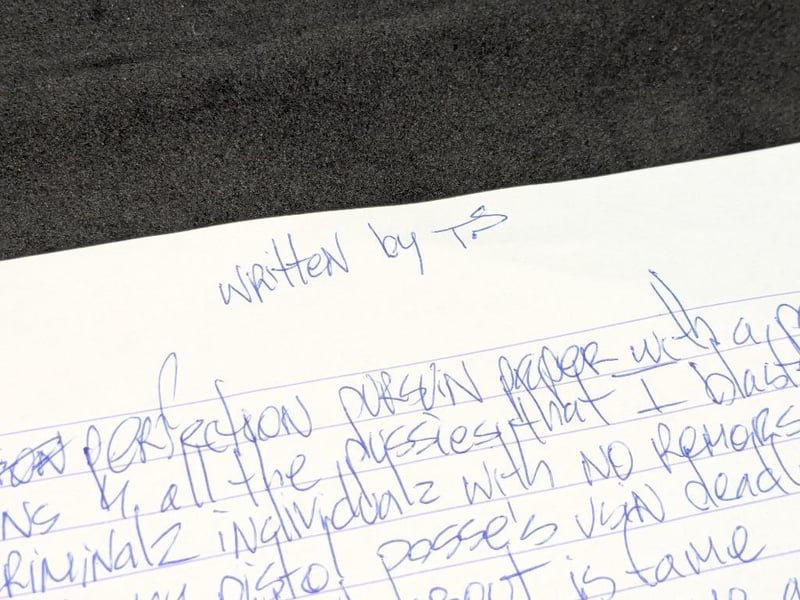 written by T.S
perfection pursuin paper with a
& all the pussies that I blast
criminalz individualz with NO remors
pistol posse's usin deadl
is tame